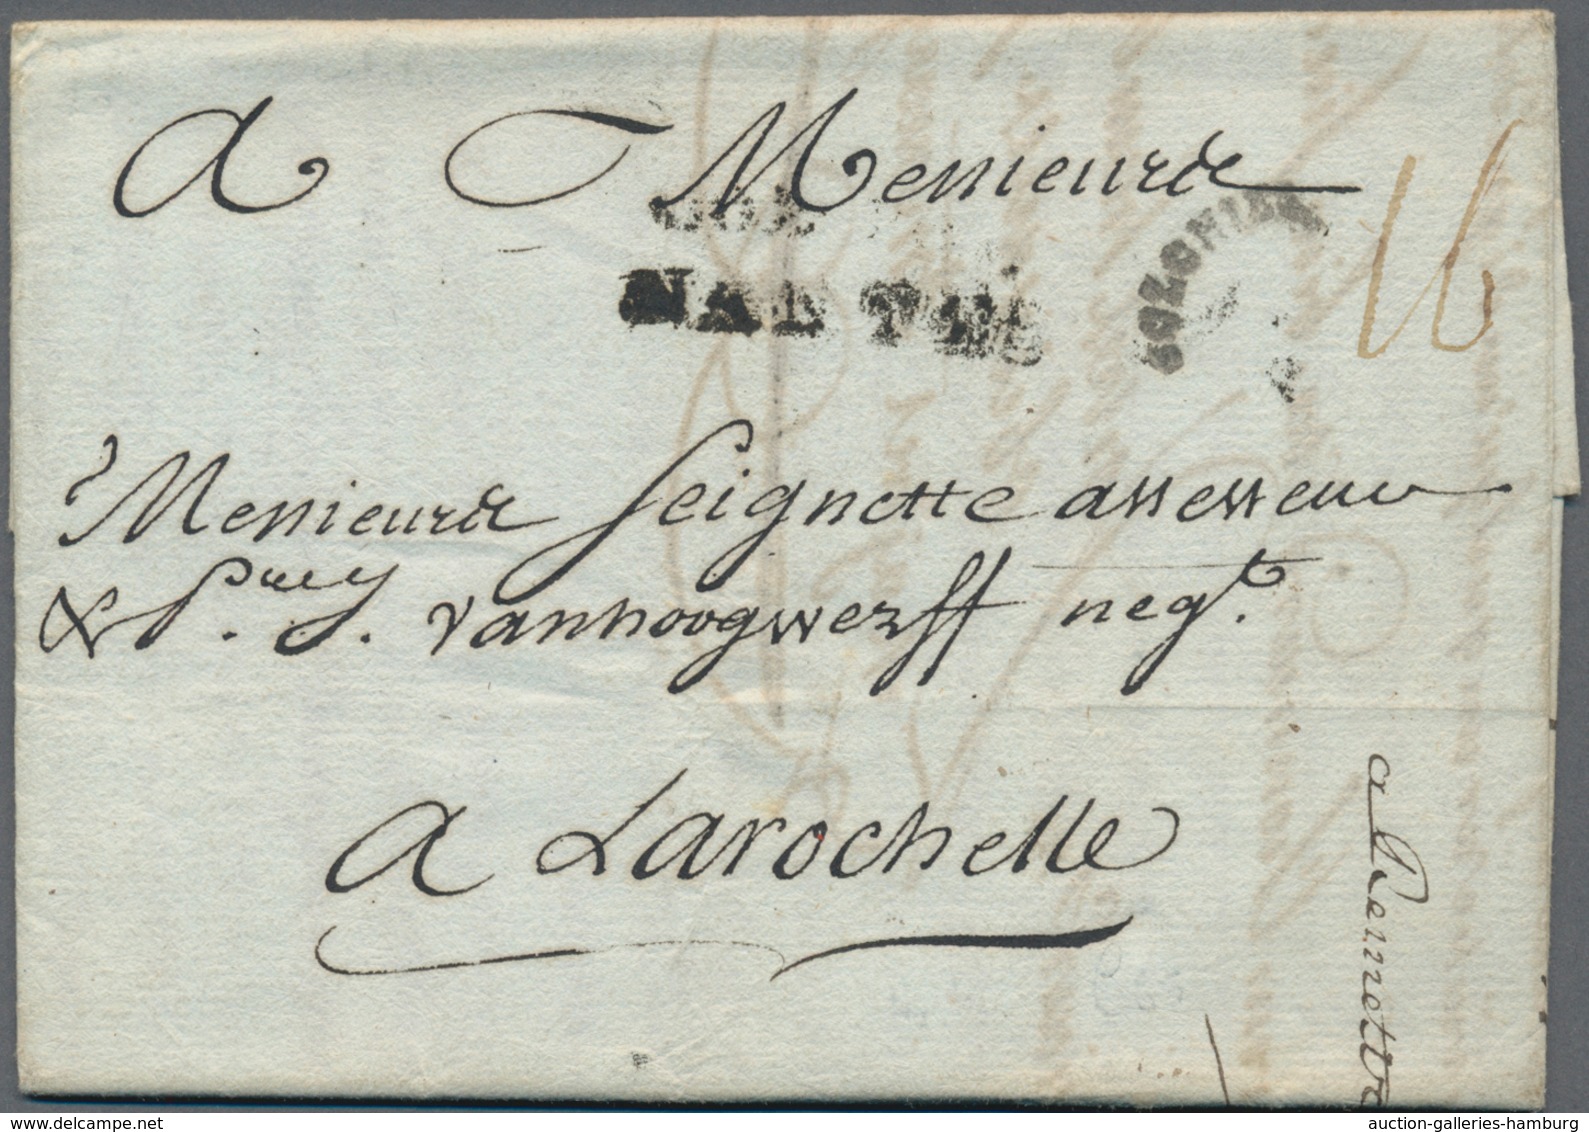 A Messieurs
COL
NANTES
COLONIES
16
Messieurs Seignette assesseur
& P. J. vanhoogwerff neg.t
A Larochelle
a Remettre
auction-galleries-hamburg